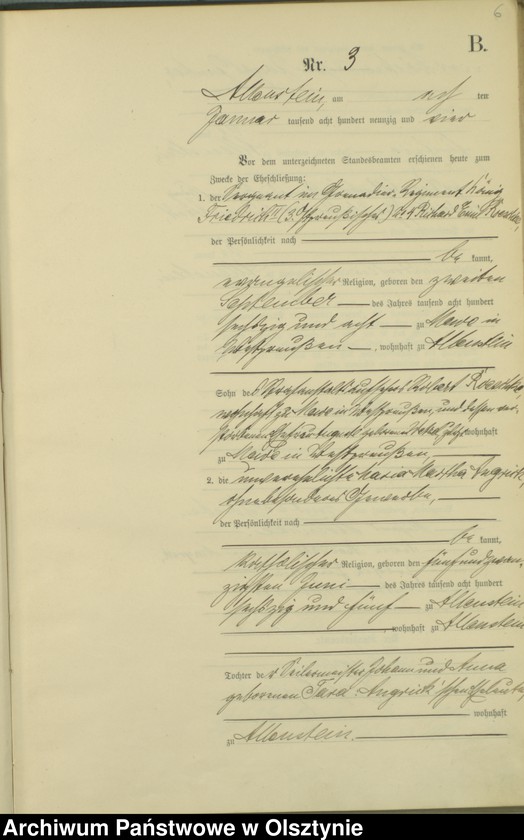 6
B.
Nr. 3
Allenstein, am acht ten
Januar tausend acht hundert neunzig und vier
Vor dem unterzeichneten Standesbeamten erschienen heute zum
Zwecke der Eheschließung:
1. der Sergeant im Grenadier-Regiment König
Friedrich II (3. Ostpreußisches) No 4 Richard Emil
der Persönlichkeit nach
be kannt,
evangelischer Religion, geboren den zweiten
September des Jahres tausend acht hundert
sechszig und acht zu Mewe in
Westpreußen, wohnhaft zu Allenstein
Sohn des
wohnhaft zu Mewe in Westpreußen, und dessen ver-
storbenen Ehefrau geborenen wohnhaft
zu Mewe in Westpreußen.
2. die unverehelichte Maria Martha Angrick,
ohne besonderes Gewerbe,
der Persönlichkeit nach
be kannt,
katholischer Religion, geboren den fünfundzwan-
zigsten Juni des Jahres tausend acht hundert
sechszig und fünf zu Allenstein
, wohnhaft zu Allenstein
Tochter der Seilermeister Johann und Anna
geborenen Angrick'schen Eheleute,
wohnhaft
zu Allenstein.
Archiwum Państwowe w Olsztynie